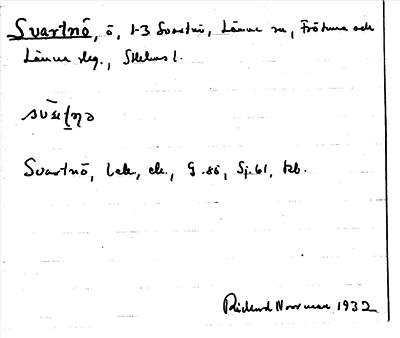 Svartnö, ö, 1-3 Svartnö, Länna sn, Frötuna och
Länna skg., Sthlms l.
Svartnö, bek., ek., G. 86, Sj. 61, tkb.
Rickard Norrman 1932